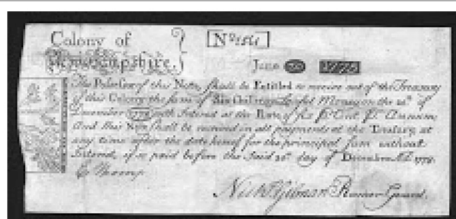 Colony of
Newhampshire.
No 1561
June 20 1775
The Possessor of this Note shall be Entitled to receive out of the Treasury
of this Colony the sum of Six Shillings Lawful Money on the 20th of
December 1778 with Interest at the Rate of Six Pr Cent Pr Annum
And this Note shall be received in all payments at the Treasury at
any time after the date hereof for the principal sum without
Interest, if so paid before the said 20th day of December AD. 1778
E Thomp
Nichs Gilman Receiver General.